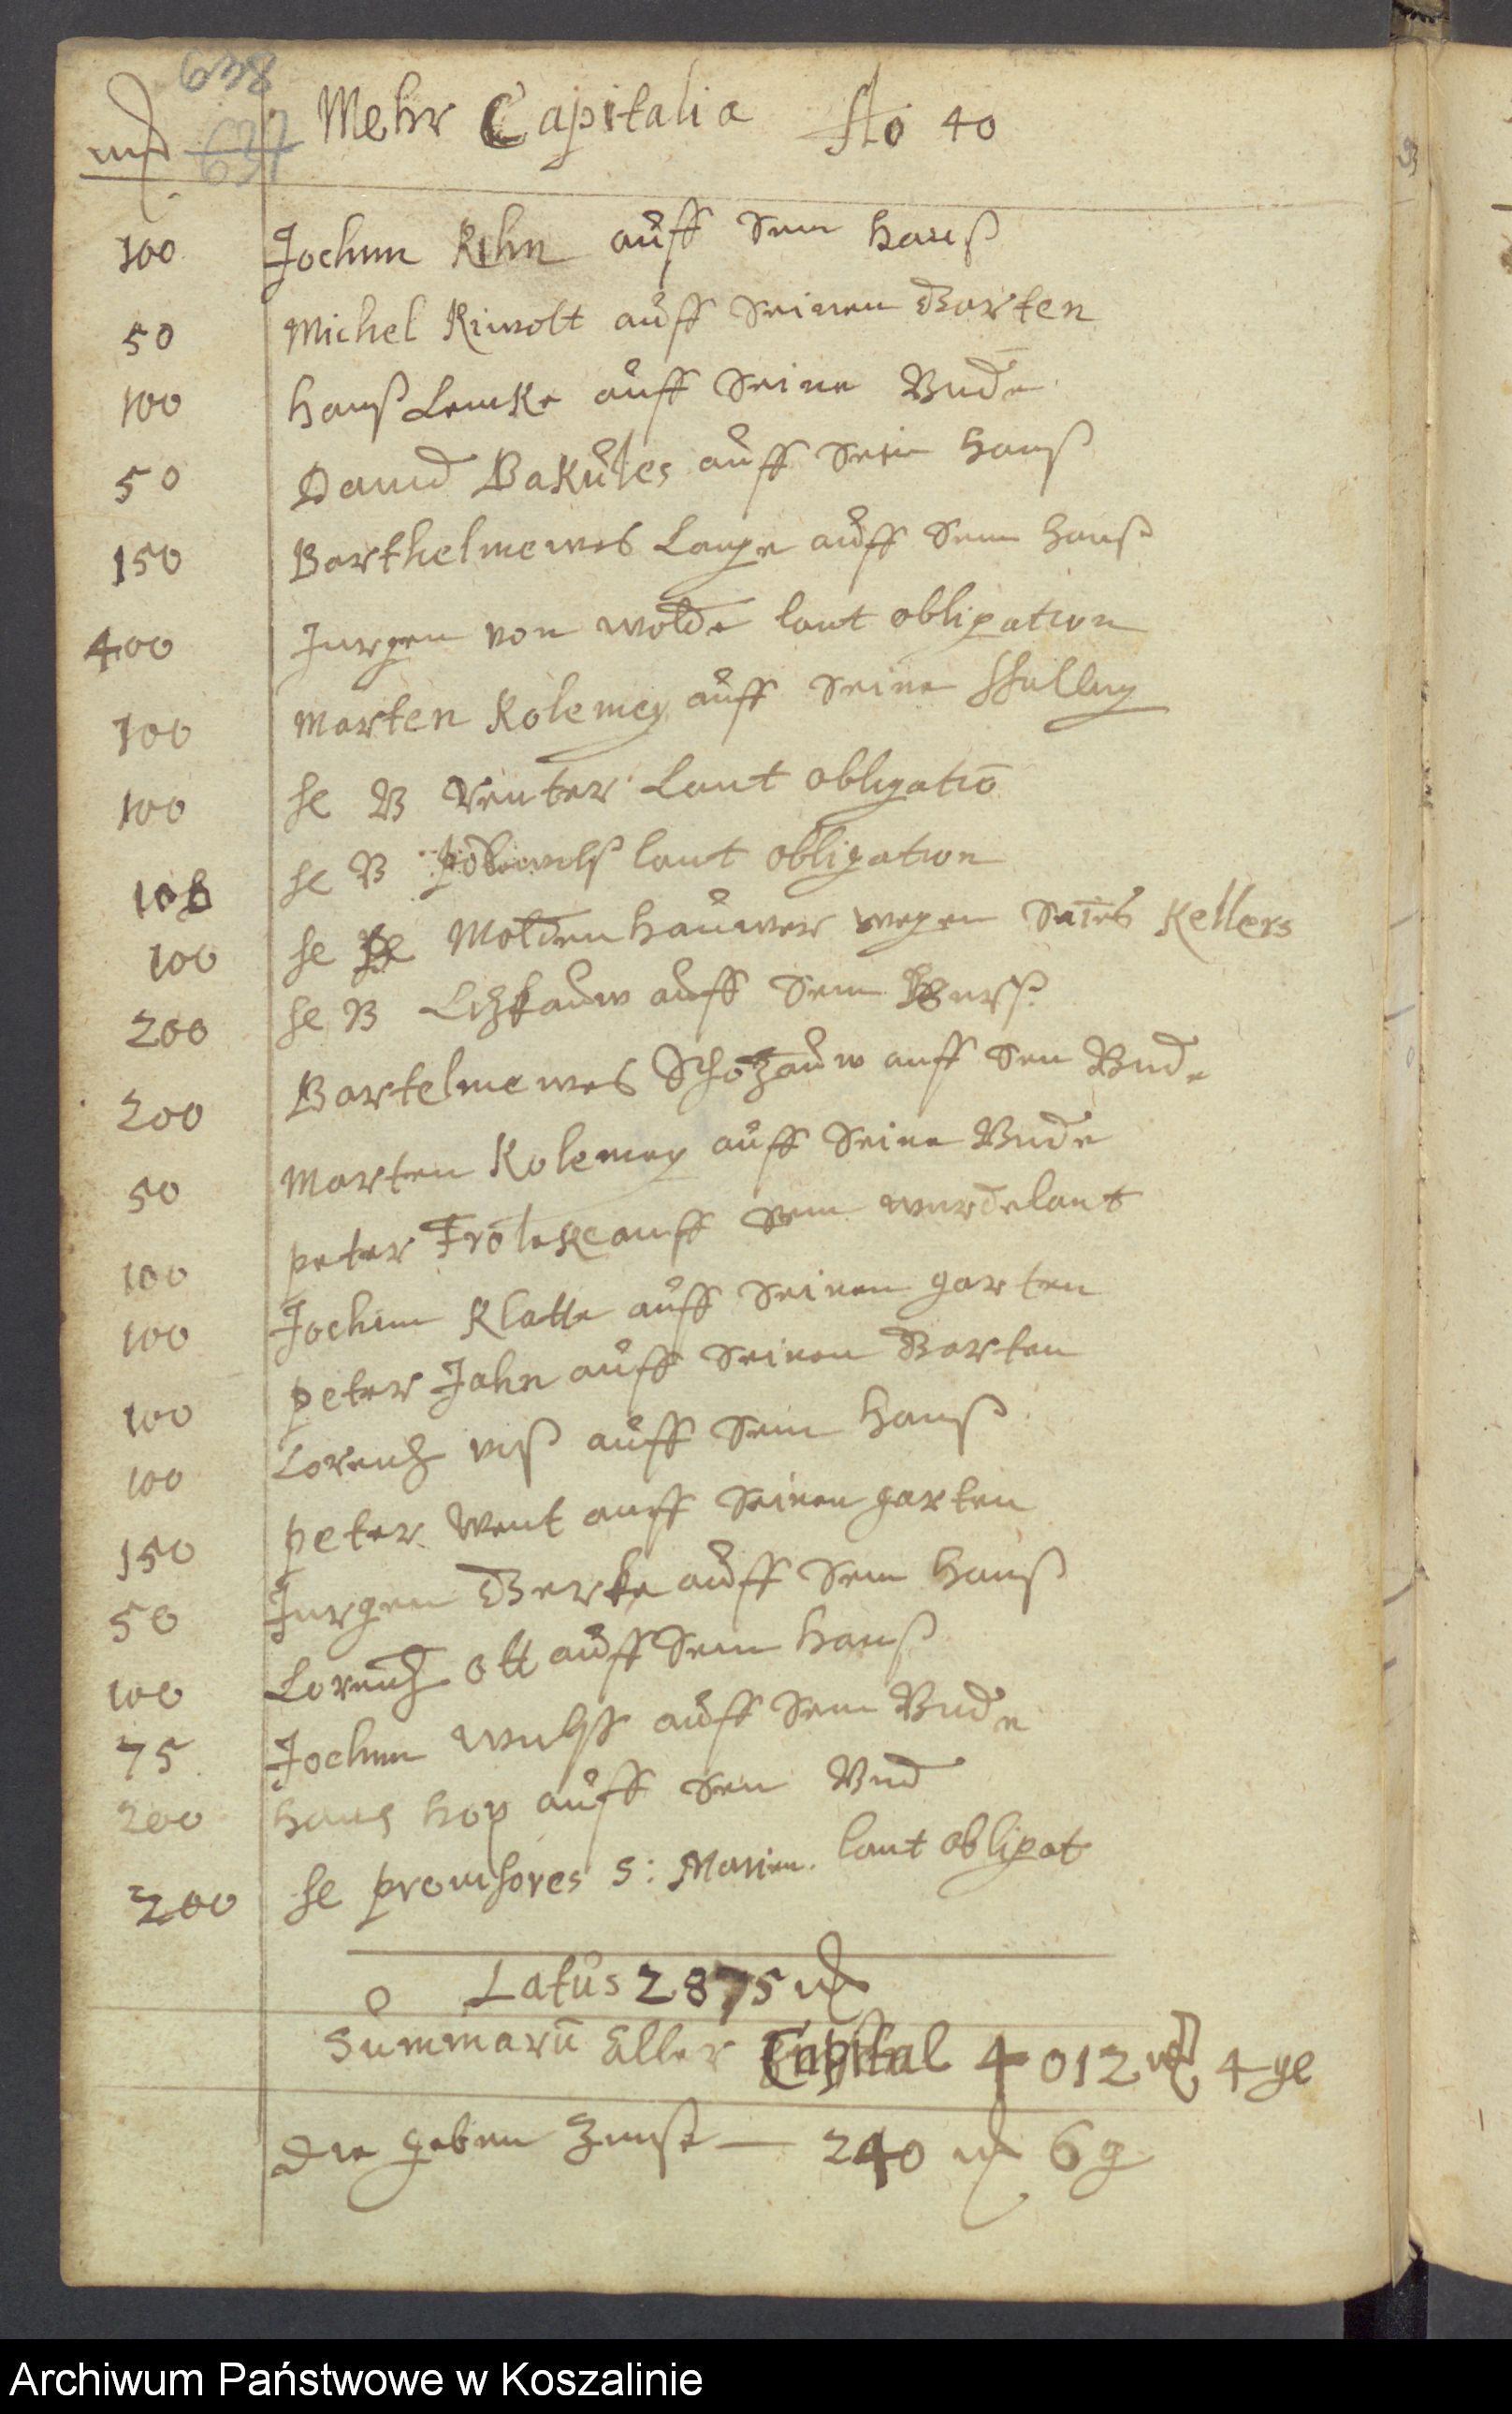 638
637
Mehr Capitalia Ao 40
100 Jochim Kihn auff sein hauß
50 Michel Kiwolt auff seinen Garten
100 Hanß Lemke auff seine Bude
50 Dauid Bakules auff sein Hauß
150 Barthelmewes Lange auff sein Hauß
400 Jurgen von Wolde laut obligation
100 Marten Kolemey auff seine
100 he B Venter laut obligatiō
100 he B laut obligation
100 he Moldenhauwer wegen seines Kellers
200 he B auff sein
200 Bartelmewes Schotzauw auff sein Bude
50 Marten Kolemey auff seine Bude
100 Peter Froleke auff sein wurdelant
100 Jochim Klatte auff seinen garten
100 Peter Jahn auff seinen Garten
100 Lorentz viß auff sein Hauß
150 Peter Went auff seinen garten
50 Jurgen Gerke auff sein Hauß
100 Lorentz Ott auff sein Hauß
75 Jochim Wulff auff sein Bude
200 Hans Hop auff sein Bud
200 he prouisores S: Marien. laut obligat
Latus 2875
Summarū aller Capital 4012 4 gl
Die geben Zinse — 240 6 g
Archiwum Państwowe w Koszalinie